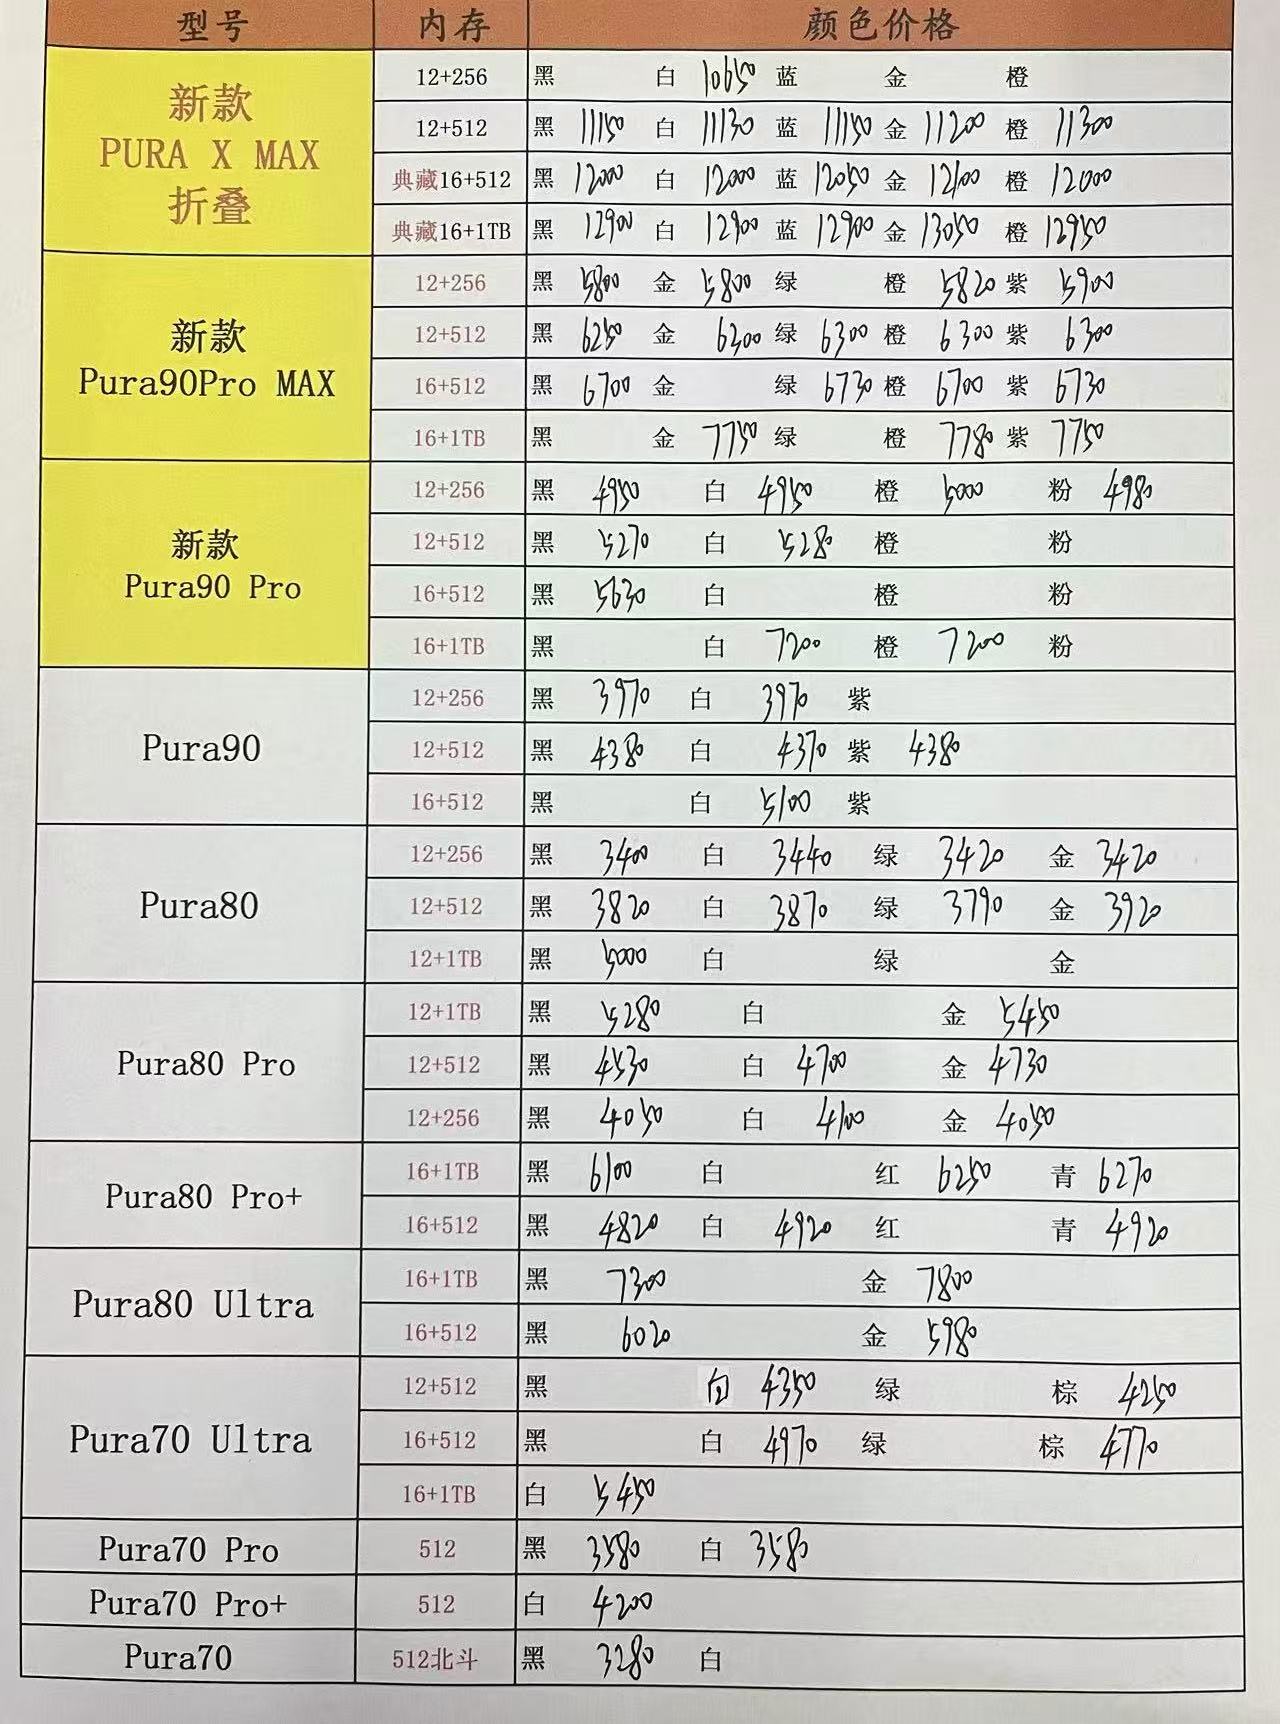 型号 内存 颜色价格
新款
PURA X MAX
折叠
12+256 黑 白 10650 蓝 金 橙
12+512 黑 11150 白 11130 蓝 11150 金 11200 橙 11300
典藏16+512 黑 12000 白 12000 蓝 12050 金 12100 橙 12000
典藏16+1TB 黑 12900 白 12900 蓝 12900 金 13050 橙 12950
新款
Pura90Pro MAX
12+256 黑 5800 金 5800 绿 橙 5820 紫 5900
12+512 黑 6250 金 6300 绿 6300 橙 6300 紫 6300
16+512 黑 6700 金 绿 6730 橙 6700 紫 6730
16+1TB 黑 金 7750 绿 橙 7780 紫 7750
新款
Pura90 Pro
12+256 黑 4950 白 4950 橙 5000 粉 4980
12+512 黑 5270 白 5280 橙 粉
16+512 黑 5630 白 橙 粉
16+1TB 黑 白 7200 橙 7200 粉
Pura90
12+256 黑 3970 白 3970 紫
12+512 黑 4380 白 4370 紫 4380
16+512 黑 白 5100 紫
Pura80
12+256 黑 3400 白 3440 绿 3420 金 3420
12+512 黑 3820 白 3870 绿 3790 金 3920
12+1TB 黑 5000 白 绿 金
Pura80 Pro
12+1TB 黑 5280 白 金 5450
12+512 黑 4530 白 4700 金 4730
12+256 黑 4050 白 4100 金 4050
Pura80 Pro+
16+1TB 黑 6100 白 红 6250 青 6270
16+512 黑 4820 白 4920 红 青 4920
Pura80 Ultra
16+1TB 黑 7300 金 7800
16+512 黑 6020 金 5980
Pura70 Ultra
12+512 黑 白 4350 绿 棕 4250
16+512 黑 白 4970 绿 棕 4770
16+1TB 白 5450
Pura70 Pro 512 黑 3580 白 3580
Pura70 Pro+ 512 白 4200
Pura70 512北斗 黑 3280 白